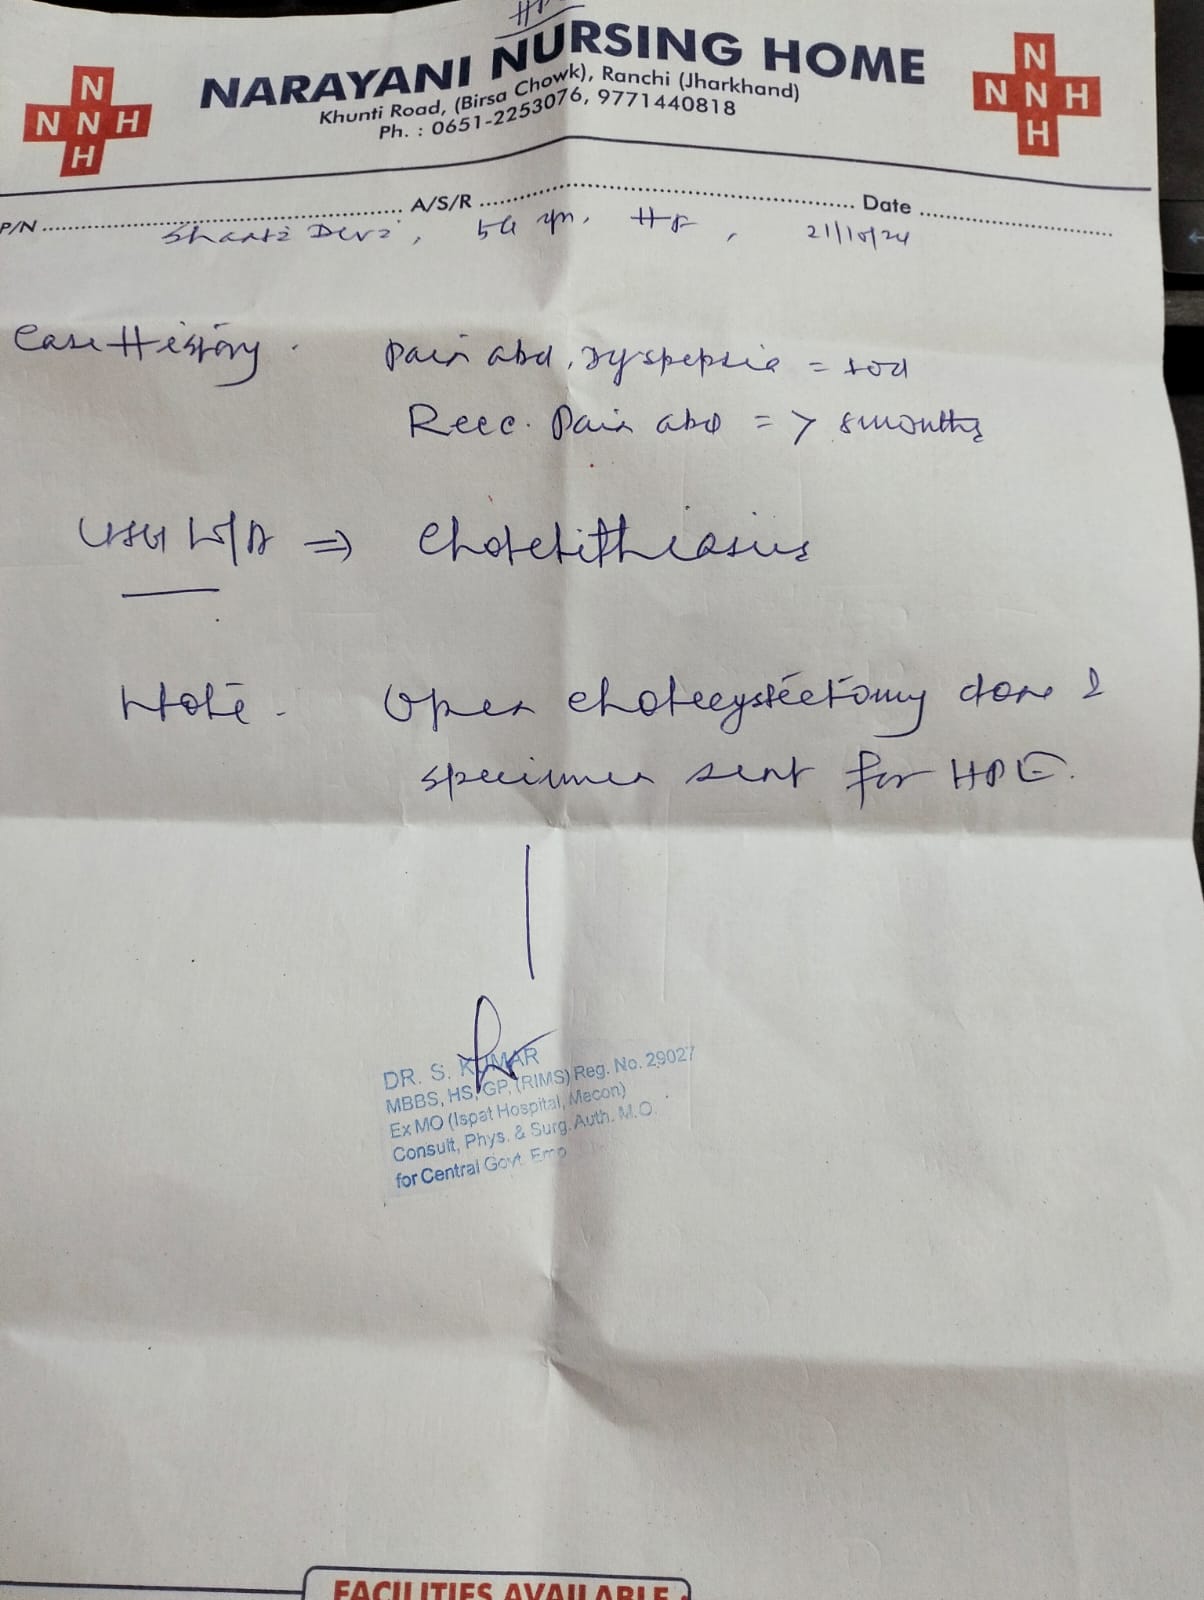 NARAYANI NURSING HOME
Khunti Road, (Birsa Chowk), Ranchi (Jharkhand)
Ph. : 0651-2253076, 9771440818
N
N N H
H
N
N N H
H
P/N .......... A/S/R .......... Date ..........
Shanti Devi, 21/10/24
Case History. Pain abd, dyspepsia =
Recc. Pain abd = > 8 months
USG W/A ⇒ Cholelithiasis
Note. Open cholecystectomy done &
specimen sent for HPE.
DR. S. KUMAR
MBBS, HS, GP, (RIMS) Reg. No. 29027
Ex MO (Ispat Hospital, Mecon)
Consult, Phys. & Surg. Auth. M.O.
for Central Govt. Emp
FACILITIES AVAILABLE